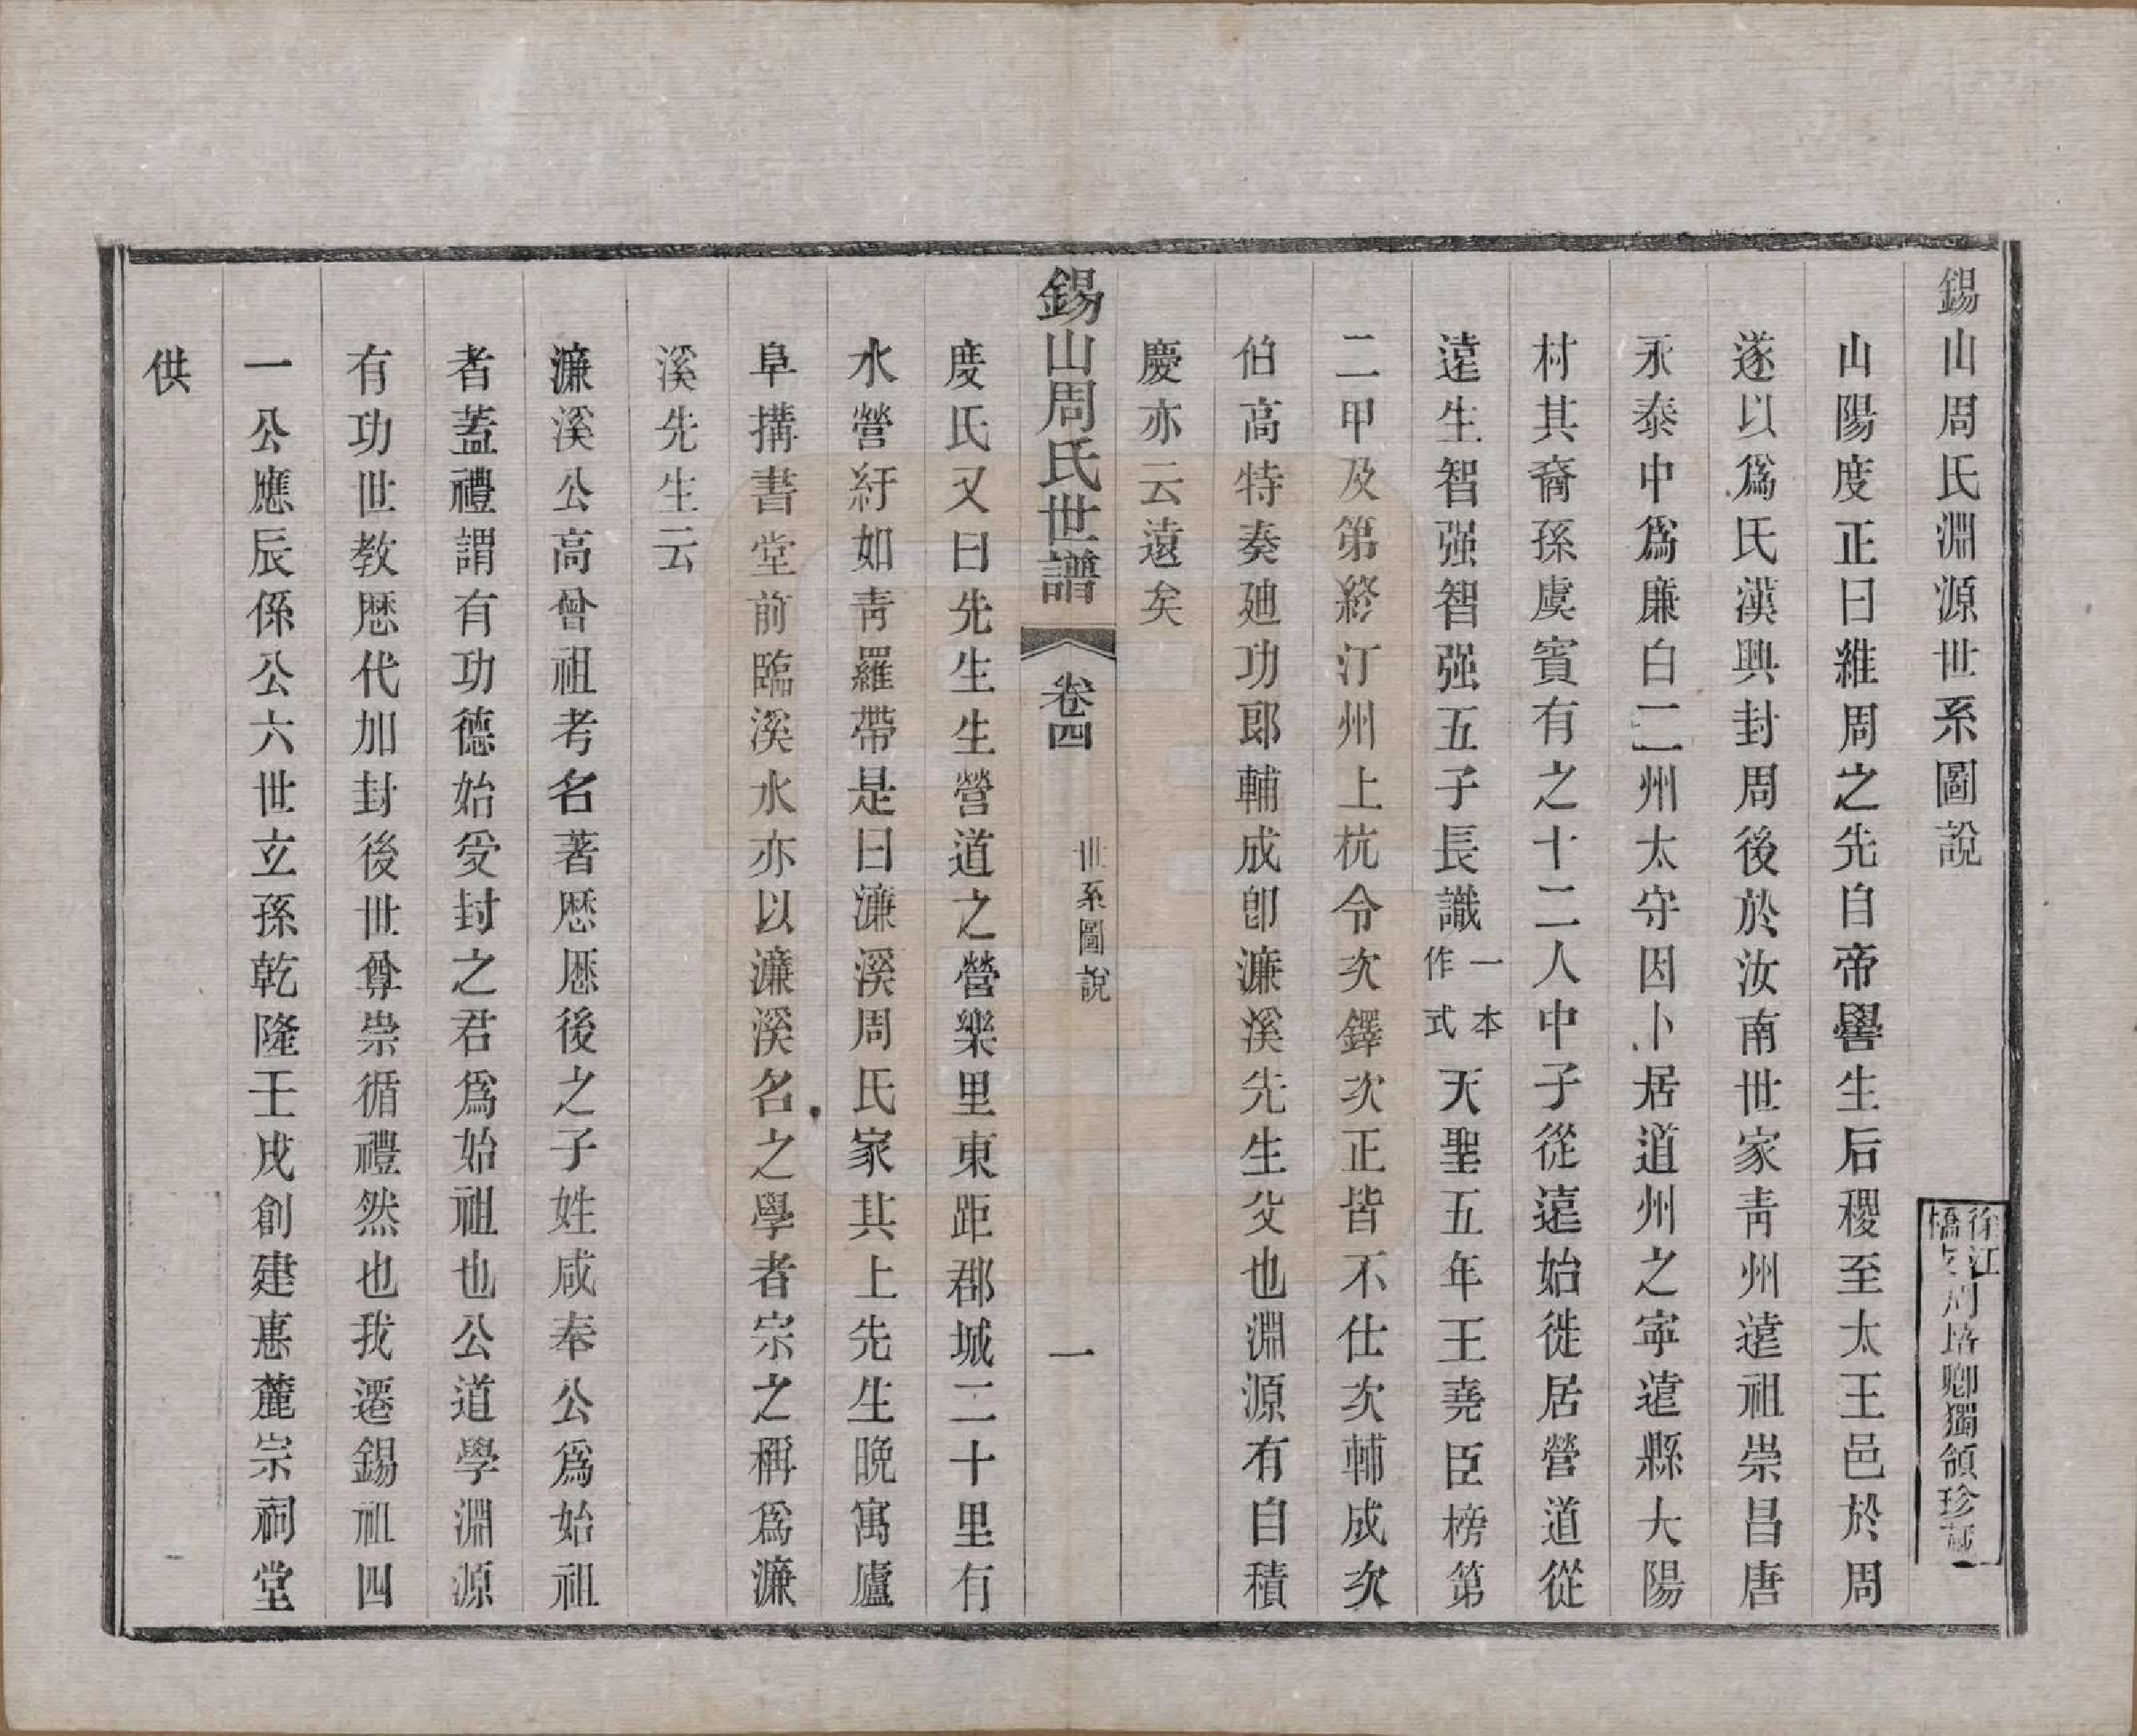 錫山周氏淵源世系圖說
徐江
橋
周培卿獨領珍藏
山陽度正曰維周之先自帝嚳生后稷至太王邑於周
遂以爲氏漢興封周後於汝南世家靑州遠祖崇昌唐
永泰中爲廉白二州太守因卜居道州之寧遠縣大陽
村其裔孫虞賓有之十二人中子從遠始徙居營道從
遠生智强智强五子長識一本作式天聖五年王堯臣榜第
二甲及第終汀州上杭令次鐸次正皆不仕次輔成次
伯高特奏廸功郎輔成卽濂溪先生父也淵源有自積
慶亦云遠矣
錫山周氏世譜
卷四
世系圖說
一
度氏又曰先生生營道之營樂里東距郡城二十里有
水營紆如靑羅帶是曰濂溪周氏家其上先生晩寓廬
阜搆書堂前臨溪水亦以濂溪名之學者宗之稱爲濂
溪先生云
濂溪公高曾祖考名著歷歷後之子姓咸奉公爲始祖
者蓋禮謂有功德始受封之君爲始祖也公道學淵源
有功世教歷代加封後世尊崇循禮然也我遷錫祖四
一公應辰係公六世立孫乾隆壬戌創建惠麓宗祠堂
供